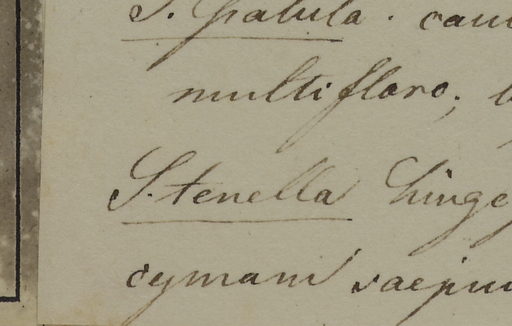 S. patula. cau
multifloro;
S. tenella
cymam saepiu